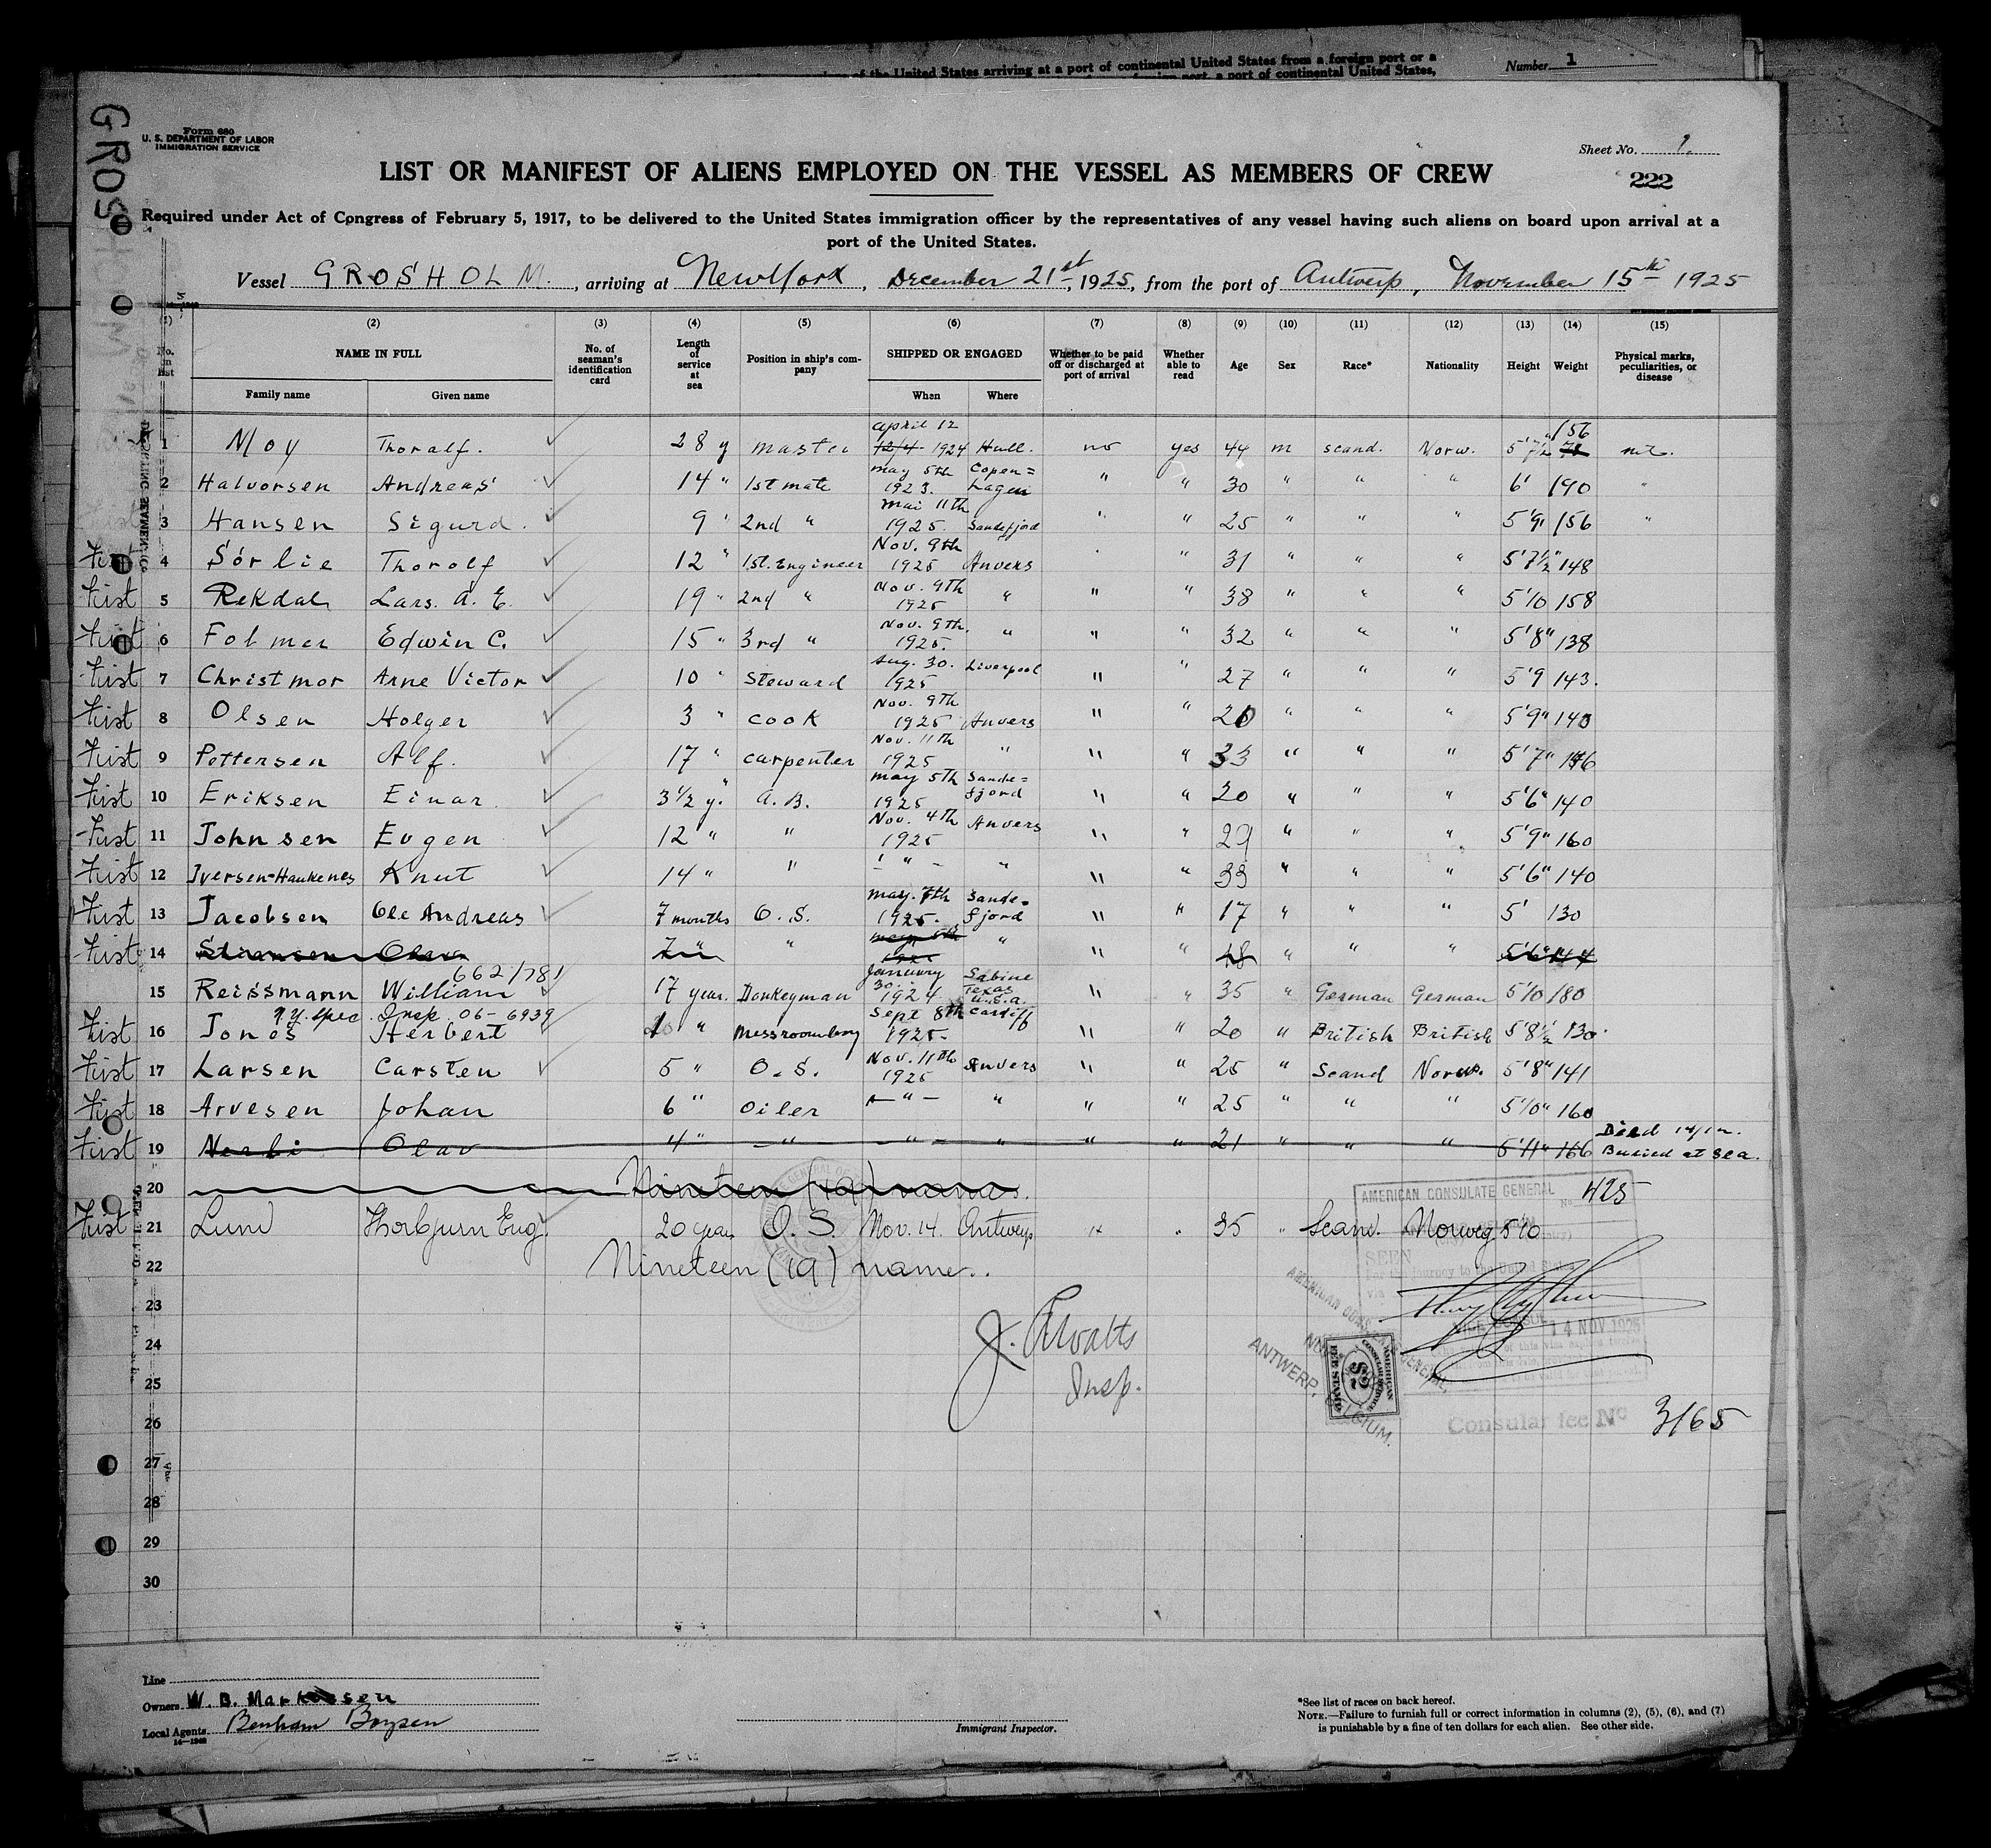 of the United States arriving at a port of continental United States from a foreign port or a
foreign port, a port of continental United States,
Number 1
GROSHOLM
Form 680
U. S. DEPARTMENT OF LABOR
IMMIGRATION SERVICE
Sheet No. 1.
LIST OR MANIFEST OF ALIENS EMPLOYED ON THE VESSEL AS MEMBERS OF CREW
222
Required under Act of Congress of February 5, 1917, to be delivered to the United States immigration officer by the representatives of any vessel having such aliens on board upon arrival at a
port of the United States.
Vessel GROSHOLM., arriving at New York, December 21st, 1925, from the port of Antwerp, November 15th 1925
(1) (2) (3) (4) (5) (6) (7) (8) (9) (10) (11) (12) (13) (14) (15)
No. on list NAME IN FULL No. of seaman's identification card Length of service at sea Position in ship's company SHIPPED OR ENGAGED Whether to be paid off or discharged at port of arrival Whether able to read Age Sex Race* Nationality Height Weight Physical marks, peculiarities, or disease
Family name Given name When Where
1 Moy Thoralf. 28 y master april 12 12/4 1924 Hull. no yes 44 m scand. Norw. 5'7½" 156 nil.
2 Halvorsen Andreas 14 " 1st mate may 5th 1923. Copen=hagen " " 30 " " " 6' 190 "
3 Hansen Sigurd. 9 " 2nd " mai 11th 1925 Sandefjord " " 25 " " " 5'9" 156 "
First 4 Sórlie Thorolf 12 " 1st. Engineer Nov. 9th 1925 Anvers " " 31 " " " 5'7½" 148
First 5 Rekdal Lars. A. E. 19 " 2nd " Nov. 9th 1925 " " " 38 " " " 5'10 158
First 6 Folmer Edwin C. 15 " 3rd " Nov. 9th. 1925. " " " 32 " " " 5'8" 138
First 7 Christmor Arne Victor 10 " Steward Aug. 30. 1925 Liverpool " " 27 " " " 5'9 143.
First 8 Olsen Holger 3 " cook Nov. 9th 1925 Anvers " " 20 " " " 5'9" 140
First 9 Pettersen Alf. 17 " carpenter Nov. 11th 1925 " " " 33 " " " 5'7" 146
First 10 Eriksen Einar 3½ y. " A.B. may 5th 1925 Sande=fjord " " 20 " " " 5'6" 140
First 11 Johnsen Eugen 12 " " Nov. 4th 1925 Anvers " " 29 " " " 5'9" 160
First 12 Iversen-Haukenes Knut 14 " " " " " " 33 " " " 5'6" 140
First 13 Jacobsen Ole Andreas 7 months O.S. may. 7th 1925. Sande=fjord " " 17 " " " 5' 130
First 14 Olav 7 " " may 5th 1925 " " " 18 " " " 5'6" 144
662/781
15 Reissmann William 17 year. Donkeyman January 30. 1924 Sabine Texas U.S.A. " " 35 " German German 5'10 180
N.Y. Spec. Insp. 06-6939
First 16 Jones Herbert 10 " Messroomboy Sept 8th 1925. Cardiff " " 20 " British British 5'8½ 130
First 17 Larsen Carsten 5 " O.S. Nov. 11th 1925 Anvers " " 25 " Scand Norw. 5'8" 141
First 18 Arvesen Johan 6 " Oiler " " " " 25 " " " 5'10" 160
First 19 Olav 4 " " " " " " 21 " " " 5'11" 166 Died 14/12. Buried at sea.
20 Nineteen (19) names.
First 21 Lund Thorbjurn Eug. 20 years O.S. Nov. 14. Antwerp " " 35 " Scand. Norweg. 5'10
22 Nineteen (19) name..
23
24
25
26
27
28
29
30
J. Insp.
AMERICAN CONSULATE GENERAL
No. 425
SEEN
For the journey to the United States
VICE CONSUL
14 NOV 1925
AMERICAN CONSULATE GENERAL,
ANTWERP, BELGIUM.
AMERICAN CONSULAR SERVICE $2 FEE STAMP
Consular fee No 3165
Line
Owners W. B. Markussen
Local Agents Benham Boysen
Immigrant Inspector.
*See list of races on back hereof.
NOTE.—Failure to furnish full or correct information in columns (2), (5), (6), and (7)
is punishable by a fine of ten dollars for each alien. See other side.